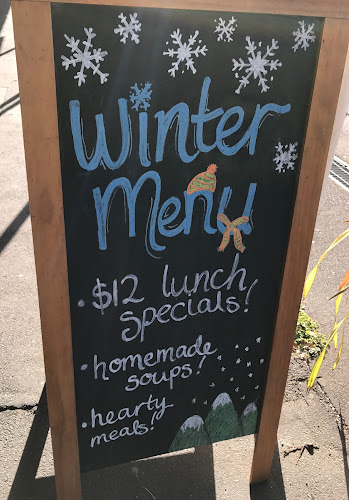 Winter
Menu
• $12 lunch
specials!
• homemade
soups!
• hearty
meals!